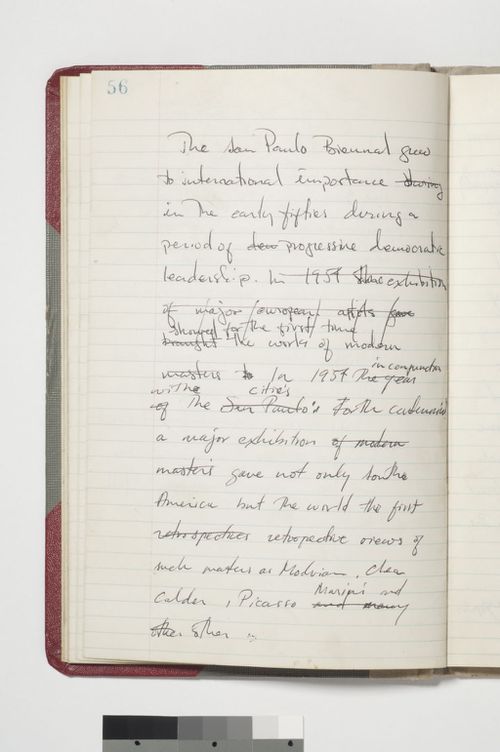 56
The San Paulo Biennal grew
to international importance during
in the early fifties during a
period of dem progressive democratic
leadership. In 1954 the exhibition
of major european artists gave
showed for the first time
brought the works of modern
masters to In 1954 the year in conjunction
with the citie's
of the San Paulo's Forth centennial
a major exhibition of modern
masters gave not only South
America but the world the first
retrospective views of
such masters as
Calder, Picasso Marini and
and many
other other